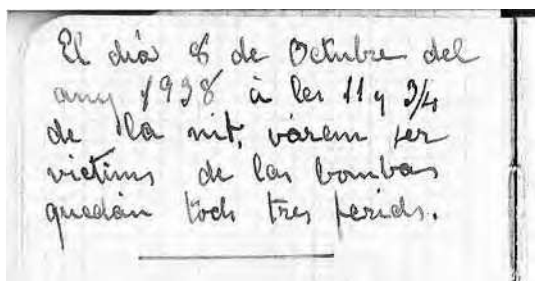 El día 8 de Octubre del
any 1938 à les 11 y 3/4
de la nit, várem ser
victims de las bombas
quedán tods tres ferids.